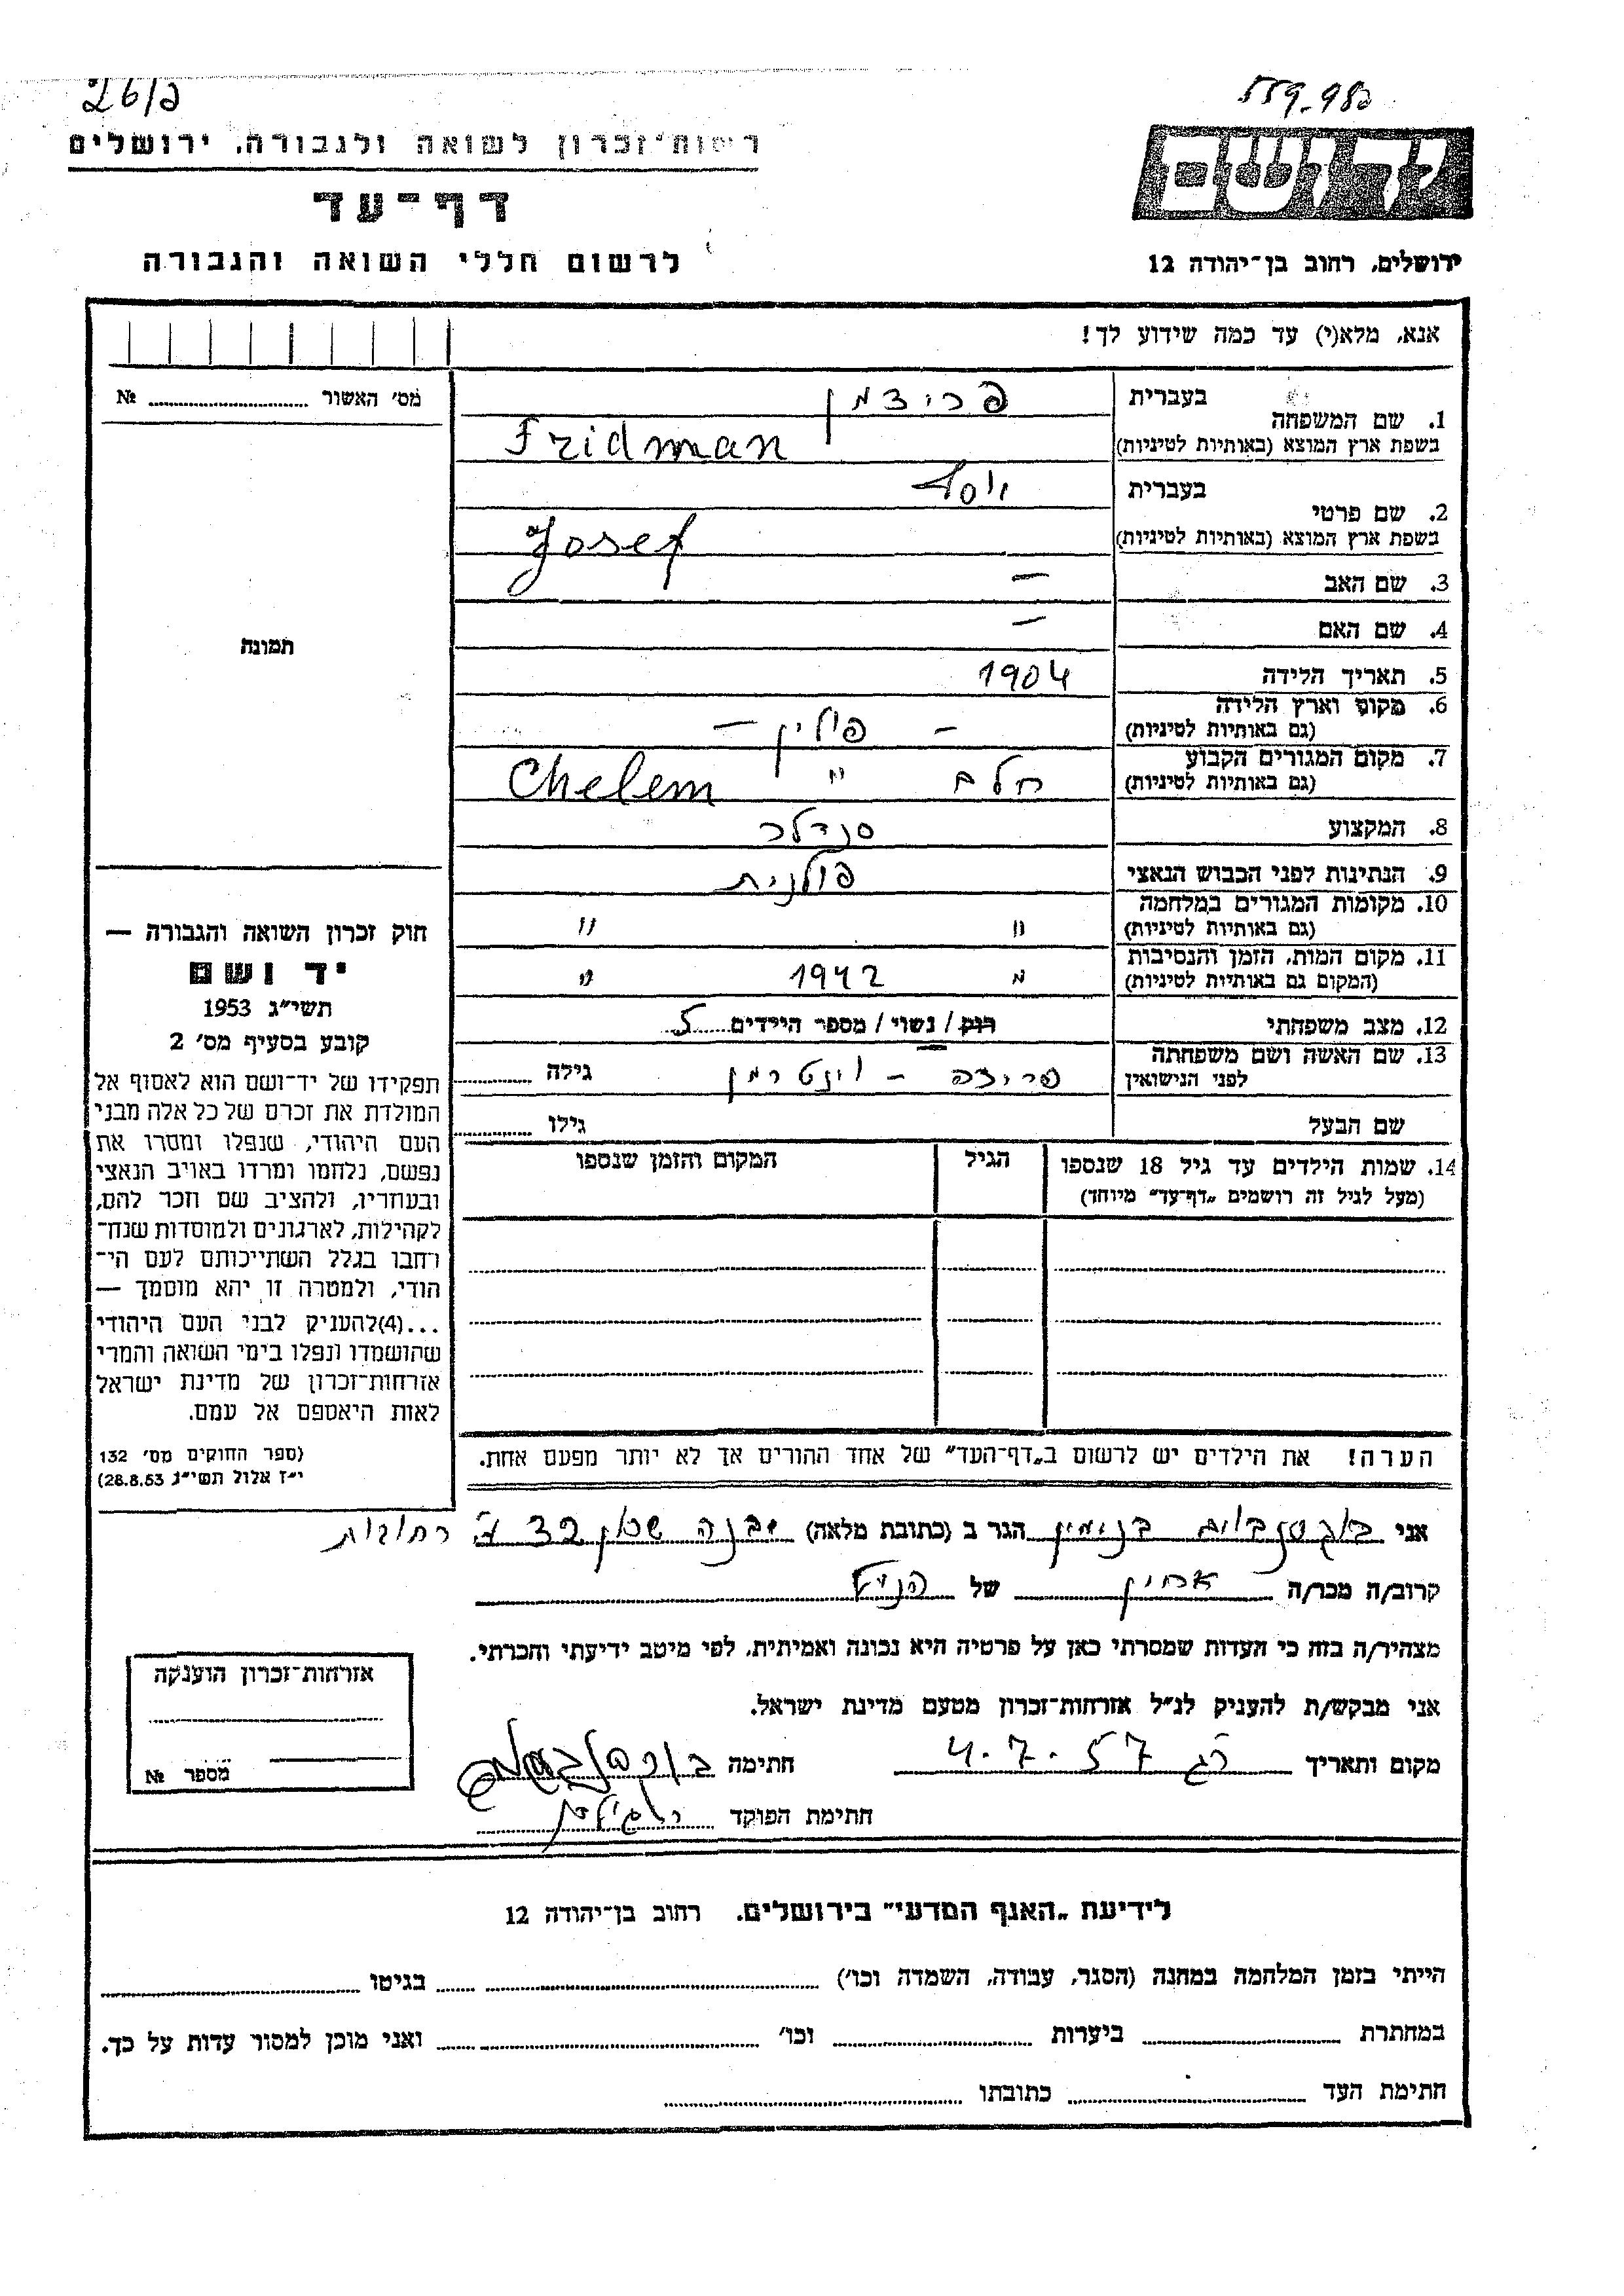 26/פ
559.98
רשות־זכרון לשואה ולגבורה, ירושלים
יד ושם
דף־עד
לרשום חללי השואה והגבורה
ירושלים, רחוב בן־יהודה 12
אנא, מלא(י) עד כמה שידוע לך!
מס׳ האשור № ........
1. שם המשפחה בעברית פרידמן
בשפת ארץ המוצא (באותיות לטיניות) Fridman
2. שם פרטי בעברית יוסף
בשפת ארץ המוצא (באותיות לטיניות) Josef
3. שם האב —
4. שם האם —
תמונה
5. תאריך הלידה 1904
6. מקום וארץ הלידה — פולין —
(גם באותיות לטיניות)
7. מקום המגורים הקבוע חלם " Chelem
(גם באותיות לטיניות)
8. המקצוע סנדלר
9. הנתינות לפני הכבוש הנאצי פולנית
10. מקומות המגורים במלחמה " "
(גם באותיות לטיניות)
11. מקום המות, הזמן והנסיבות " 1942 "
(המקום גם באותיות לטיניות)
12. מצב משפחתי רוק / נשוי / מספר הילדים 5
13. שם האשה ושם משפחתה פרידה - וינטרמן גילה ........
לפני הנישואין
שם הבעל גילו ........
14. שמות הילדים עד גיל 18 שנספו הגיל המקום והזמן שנספו
(מעל לגיל זה רושמים „דף־עד" מיוחד)
חוק זכרון השואה והגבורה —
יד ושם
תשי״ג 1953
קובע בסעיף מס׳ 2
תפקידו של יד־ושם הוא לאסוף אל
המולדת את זכרם של כל אלה מבני
העם היהודי, שנפלו ומסרו את
נפשם, נלחמו ומרדו באויב הנאצי
ובעוזריו, ולהציב שם וזכר להם,
לקהילות, לארגונים ולמוסדות שנח־
רחבו בגלל השתייכותם לעם הי־
הודי, ולמטרה זו יהא מוסמך —
...(4)להעניק לבני העם היהודי
שהושמדו ונפלו בימי השואה והמרי
אזרחות־זכרון של מדינת ישראל
לאות היאספם אל עמם.
(ספר החוקים מס׳ 132
י״ז אלול תשי״ג 28.8.53)
הערה! את הילדים יש לרשום ב„דף־העד" של אחד ההורים אך לא יותר מפעם אחת.
אני בנימין הגר ב (כתובת מלאה) יבנה שכון 32 רחובות
קרוב/ה מכר/ה אחיין של הנ״ל
מצהיר/ה בזה כי העדות שמסרתי כאן על פרטיה היא נכונה ואמיתית, לפי מיטב ידיעתי והכרתי.
אני מבקש/ת להעניק לנ״ל אזרחות־זכרון מטעם מדינת ישראל.
מקום ותאריך 4.7.57 חתימה
חתימת הפוקד
אזרחות־זכרון הוענקה
מספר №
לידיעת „האגף המדעי" בירושלים, רחוב בן־יהודה 12
הייתי בזמן המלחמה במחנה (הסגר, עבודה, השמדה וכו׳) ........ בגיטו ........
במחתרת ........ ביערות ........ וכו׳ ........ ואני מוכן למסור עדות על כך.
חתימת העד ........ כתובתו ........